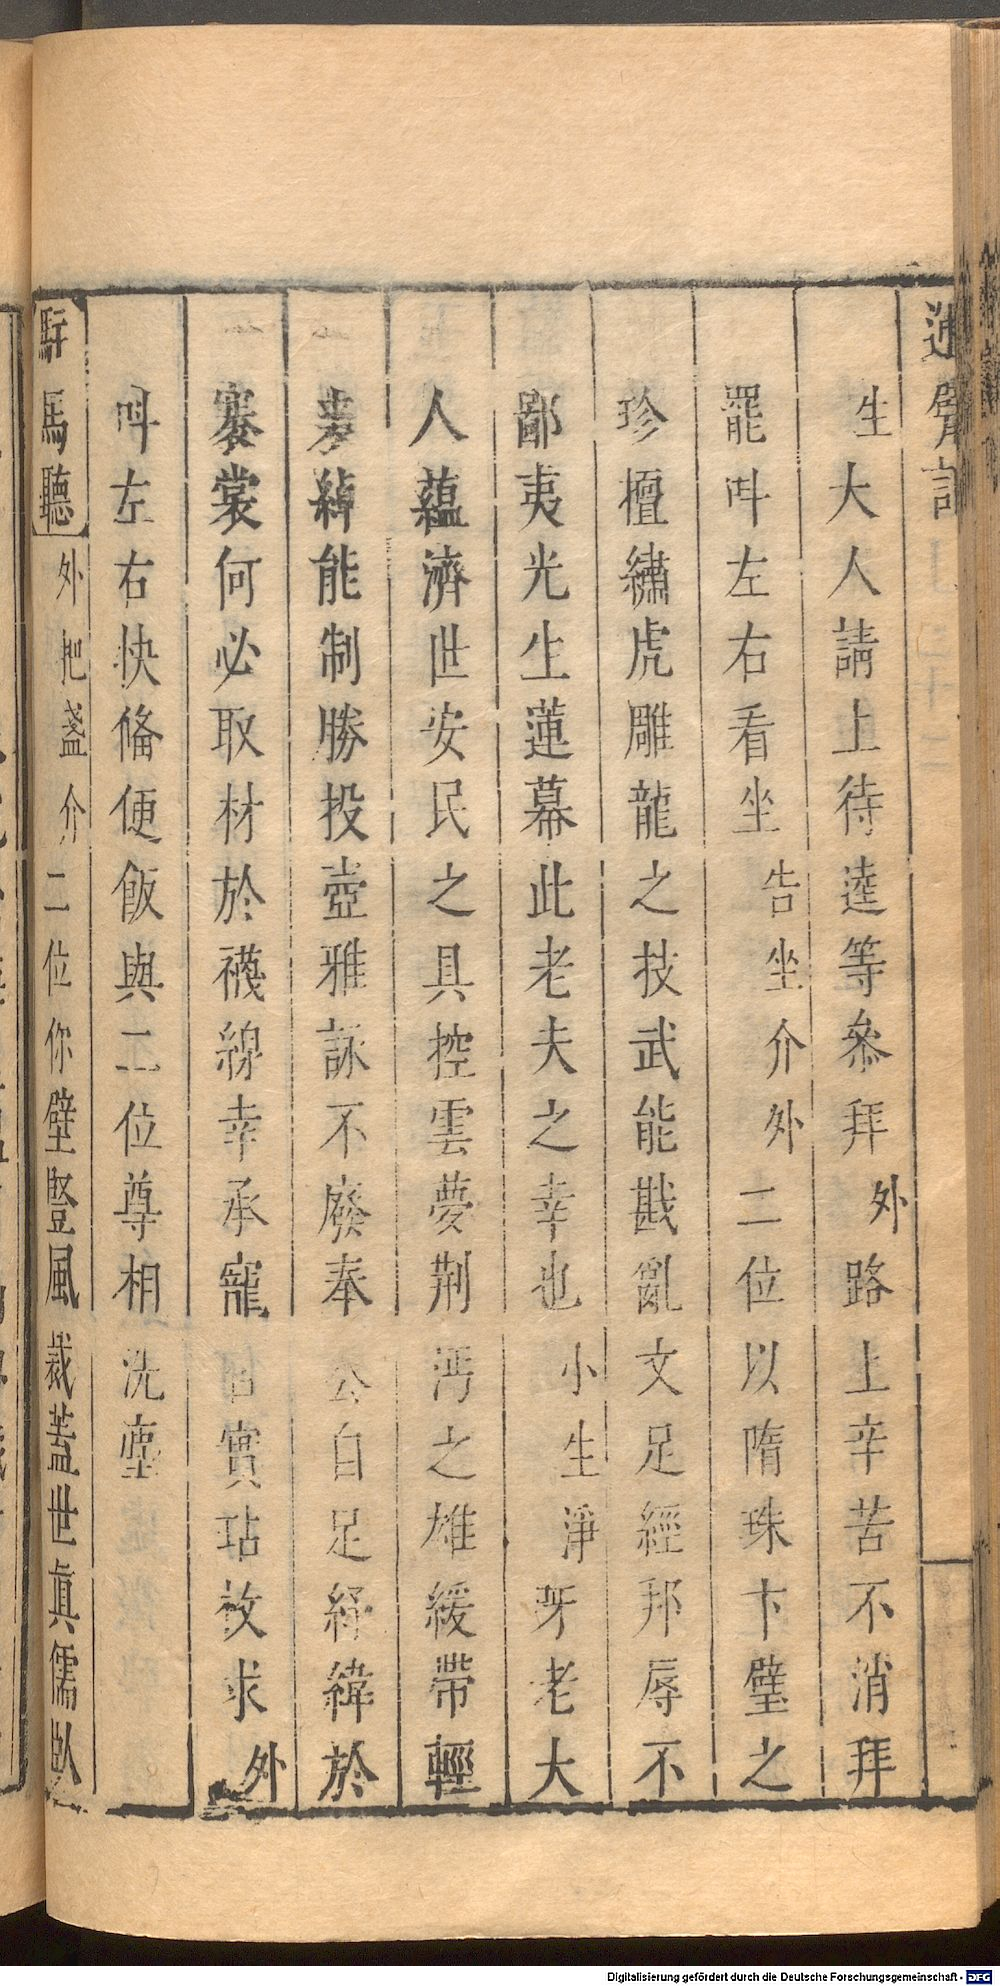 生大人請上待逵等叅拜外路上辛苦不消拜
罷呌左右看坐告坐介外二位以隋珠卞璧之
珍擅繡虎雕龍之技武能戡亂文足經邦辱不
鄙夷光生蓮幕此老夫之幸也小生淨牙老大
人蘊濟世安民之具控雲夢荆沔之雄緩帶輕
裘綽能制勝投壺雅詠不廢奉公自足經緯於
褰裳何必取材於襪線幸承寵召實玷攸求外
呌左右快俻便飯與二位尊相洗塵
駐馬聽外把盞介二位你壁竪風裁蓋世眞儒臥
Digitalisierung gefördert durch die Deutsche Forschungsgemeinschaft - DFG